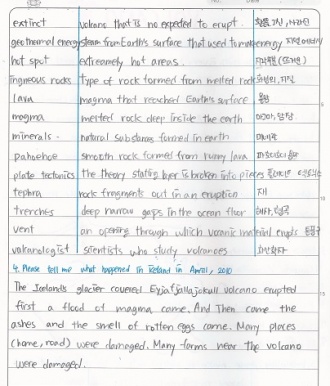 extinct volcano that is no expeded to erupt.
geothermal energy steam from Earth's surface that used to make energy
hot spot extremely hot areas.
ingneous rocks type of rock formed from melted rock
lava magma that reached Earth's surface 용암
magma melted rock deep inside the earth
minerals. natural substans formed in earth 미네랄
pahoehoe smooth rock formed from runny lava
plate tectonics the theory stating is broken into pieces
tephra rock fragments out in an eruption 재
trenches deep narrow gaps in the ocean floor
vent an opening through which vocanic material erupts
vakanologist scientists who study volcanoes
4. Please tell me what happened in Iceland in April, 2010
The Icelands glacier covered Eyjafjallajokull volcano erupted
first a flood of magma came. And Then came the
ashes and the smell of rotten eggs came. Many places
(home, road) were damaged. Many farms near the volcano
were damaged.